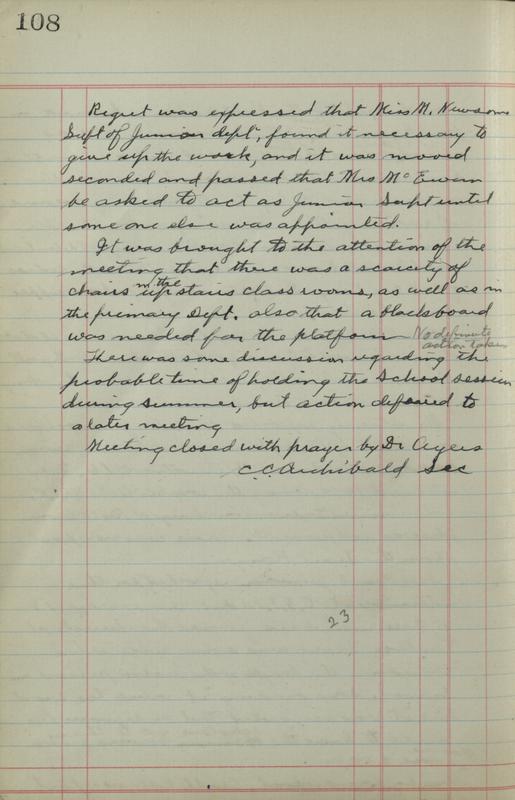 108
Regret was expressed that Miss M. Newsom
Supt of Junior dept, found it necessary to
give up the work, and it was moved
seconded and passed that Mrs McEwan
be asked to act as Junior Supt until
some one else was appointed.
It was brought to the attention of the
meeting that there was a scarcity of
chairs in the upstairs class rooms, as well as in
the primary Dept. also that a blackboard
was needed for the platform No definite
action taken
There was some discussion regarding the
probable time of holding the School session
during summer, but action deferred to
a later meeting
Meeting closed with prayer by Dr Ayers
C.C. Archibald Sec
23